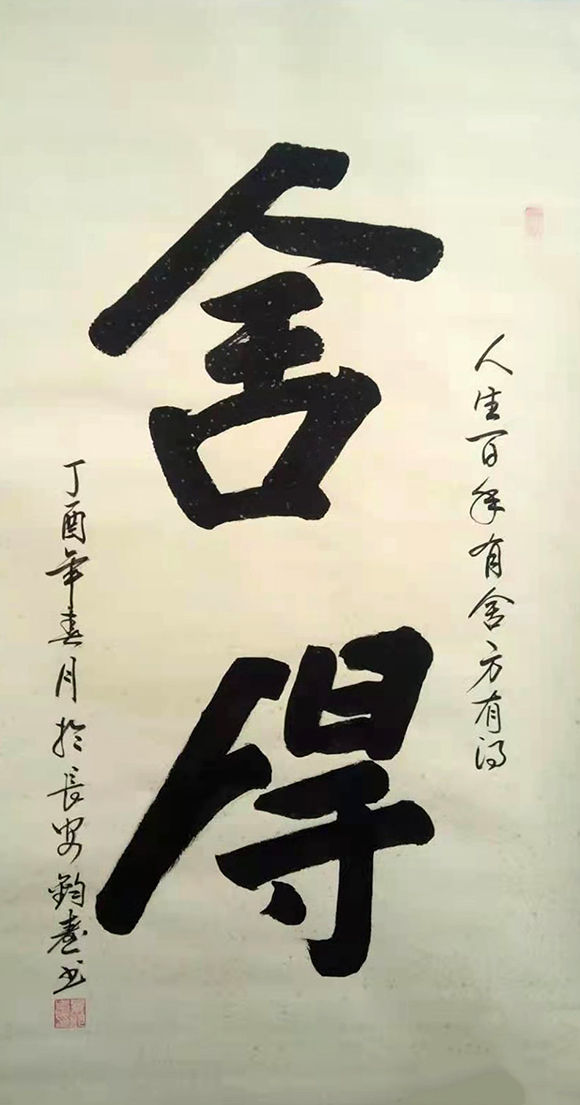 舍得
人生百年有舍方有得
丁酉年春月於長安鈞壺书